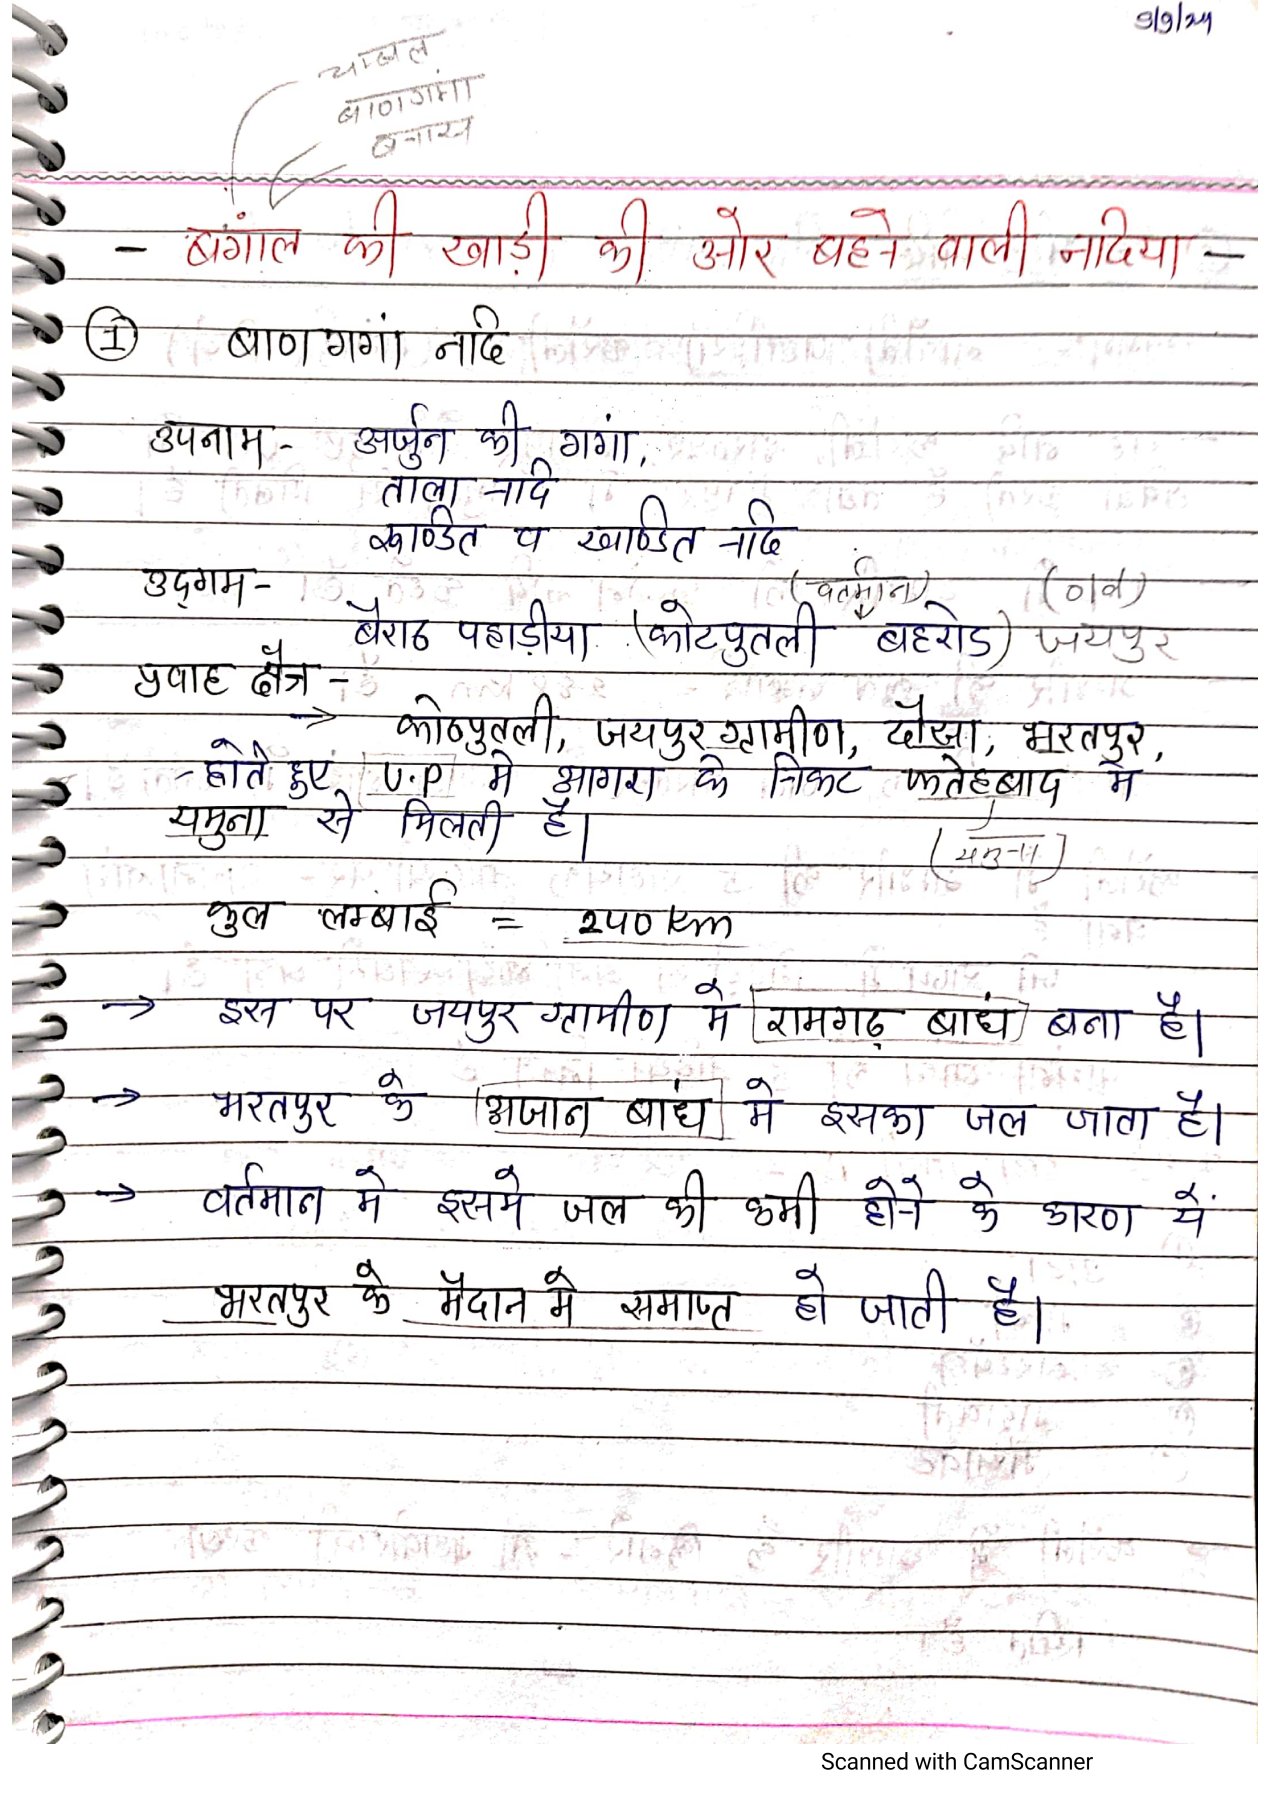 9/9/24
चम्बल
बाणगंगा
बनास
- बंगाल की खाड़ी की ओर बहने वाली नदिया -
① बाणगगां नदि
उपनाम - अर्जुन की गगां,
ताला नदि
रूण्डित व खण्डित नदि
उद्गम -
(वर्तमान) (old)
बैराठ पहाड़ीया (कोटपुतली बहरोड) जयपुर
प्रवाह क्षैत्र -
→ कोठपुतली, जयपुर ग्रामीण, दौसा, भरतपुर,
- होते हुए U.P मे आगरा के निकट फतेहबाद मे
यमुना से मिलती है।
(यमुना)
कुल लम्बाई = 240 km
→ इस पर जयपुर ग्रामीण मे रामगढ़ बाधं बना है।
→ भरतपुर के अजान बाधं मे इसका जल जाता है।
→ वर्तमान मे इसमे जल की कमी होने के कारण ये
भरतपुर के मैदान मे समाप्त हो जाती है।
Scanned with CamScanner